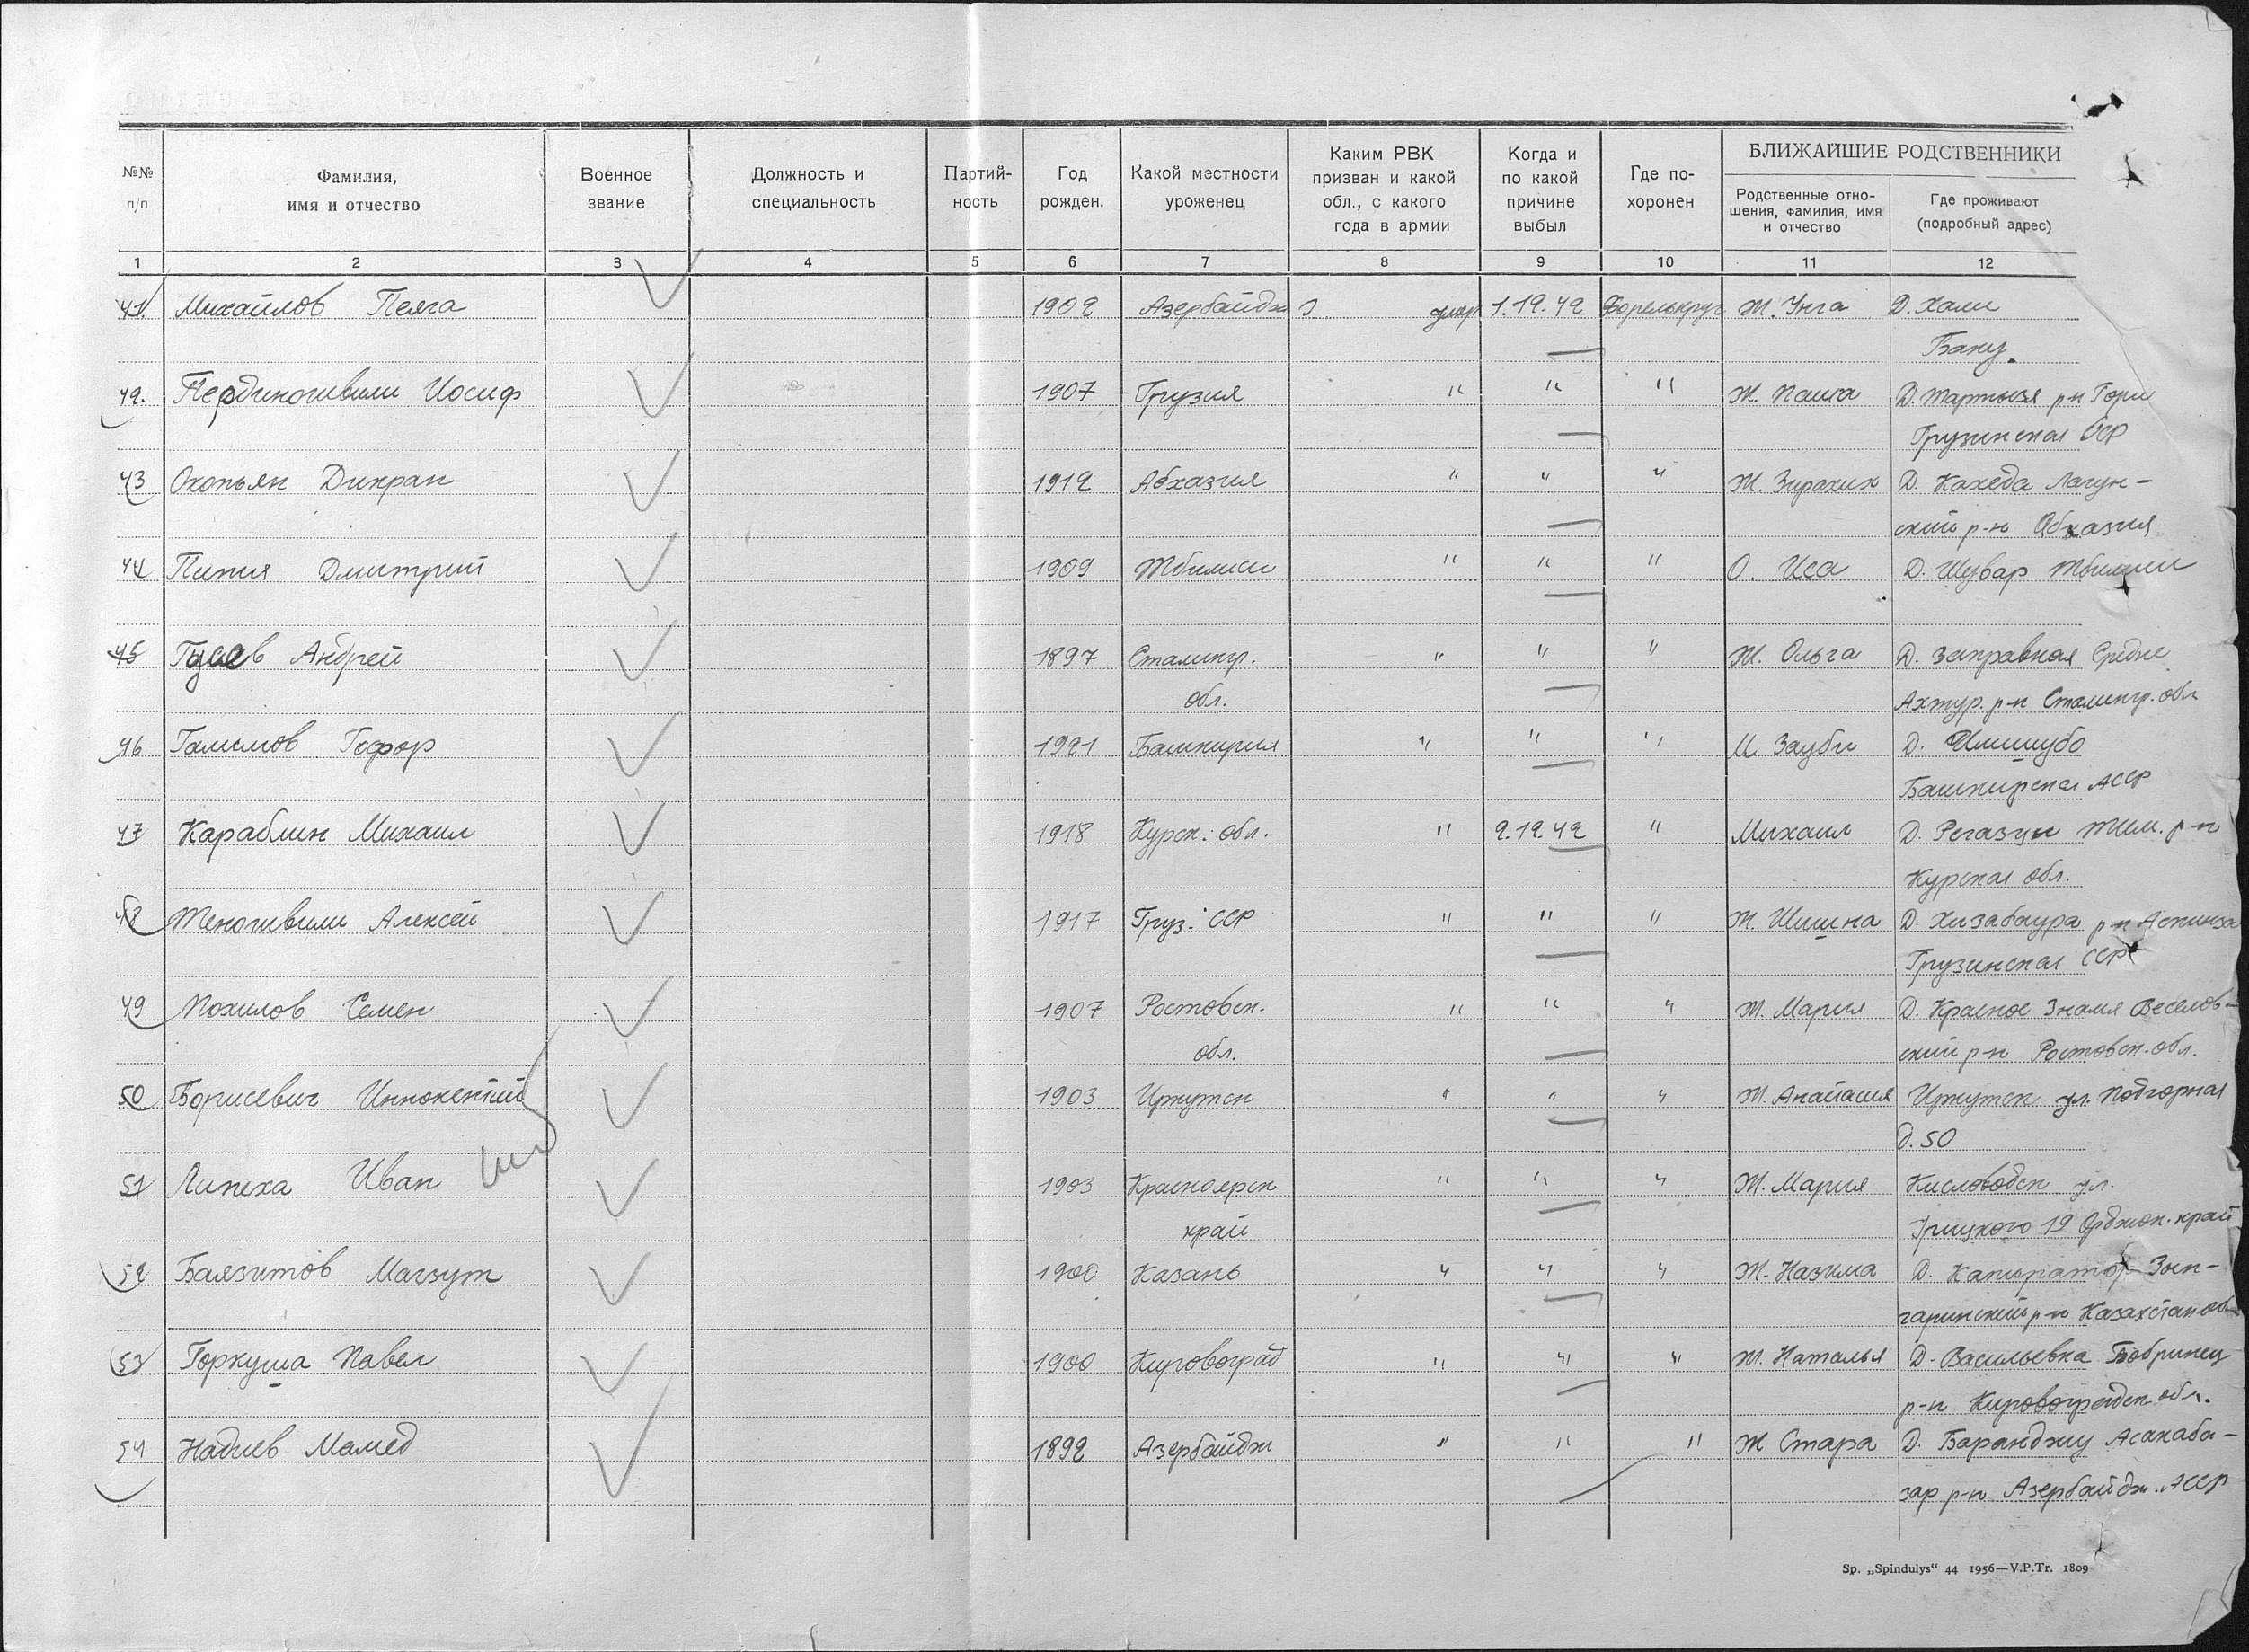 №№ п/п
Фамилия, имя и отчество
Военное звание
Должность и специальность
Партийность
Год рожден.
Какой местности уроженец
Каким РВК призван и какой обл., с какого года в армии
Когда и по какой причине выбыл
Где похоронен
БЛИЖАЙШИЕ РОДСТВЕННИКИ
Родственные отношения, фамилия, имя и отчество
Где проживают (подробный адрес)
1 2 3 4 5 6 7 8 9 10 11 12
41. Михайлов 1902 Азербайдж умер 1.12.42 Ж. Д. Хали
Баку.
42. Иосиф 1907 Грузия " " " Ж. Паша Д. р-н Гори
Грузинская ССР
43 Окопьян Дикран 1912 Абхазия " " " Ж. Д. Кахеда Лагун-
ский р-н Абхазия
44 Пипия Дмитрий 1909 Тбилиси " " " О. Иса Д. Шубар Тбилиси
45 Гусев Андрей 1897 Сталингр. " " " Ж. Ольга Д. Заправная Средне
обл. Ахтур. р-н Сталингр. обл
46 Галимов Гофор 1921 Башкирия " " " М Зауби Д.
Башкирская АССР
47 Караблин Михаил 1918 Курск. обл. " 2.12.42 " Михаил Д. Тим. р-н
Курская обл.
48 Теногивили Алексей 1917 Груз. ССР " " " Ж. Шишна Д. Хизабаура р-н Аспинза
Грузинская ССР
49 Похилов Семен 1907 Ростовск. " " " Ж. Мария Д. Красное Знамя Веселов-
обл. ский р-н Ростовск. обл.
50 Борисевич Иннокентий 1903 Иркутск " " " Ж. Иркутск ул. Подгорная
д. 50
51 Липеха Иван 1903 Красноярск " " " Ж. Мария Кисловодск ул.
край Урицкого 19 Орджон. край
52 Баязитов Магзут 1900 Казань " " " Ж. Назима Д.
р-н Казахстан
53 Горкуша Павел 1900 Кировоград " " " Ж. Наталья Д. Васильевка Бобринец
р-н Кировоградск. обл.
54 Надиев Мамед 1892 Азербайдж " " " Ж Стара Д. Баранджу Асахаба-
зар р-н Азербайдж. АССР
Sp. „Spindulys“ 44 1956—V.P.Tr. 1809